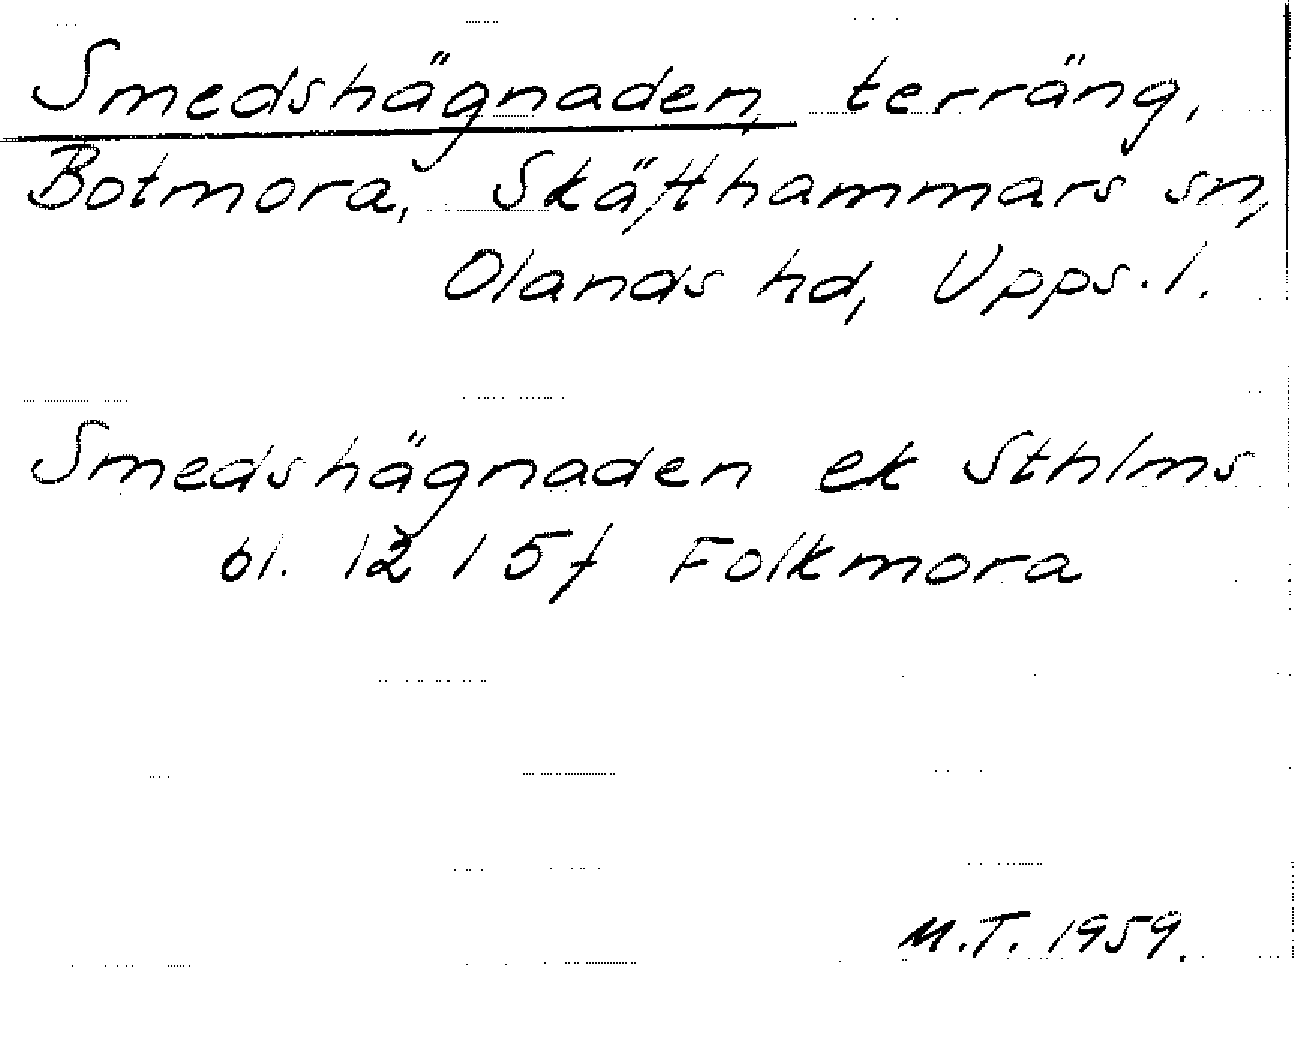 Smedshägnaden, terräng,
Botmora, Skäfthammars sn,
Olands hd, Upps. l.
Smedshägnaden ek Sthlms
bl. 12 1 5f Folkmora
M.T. 1959.